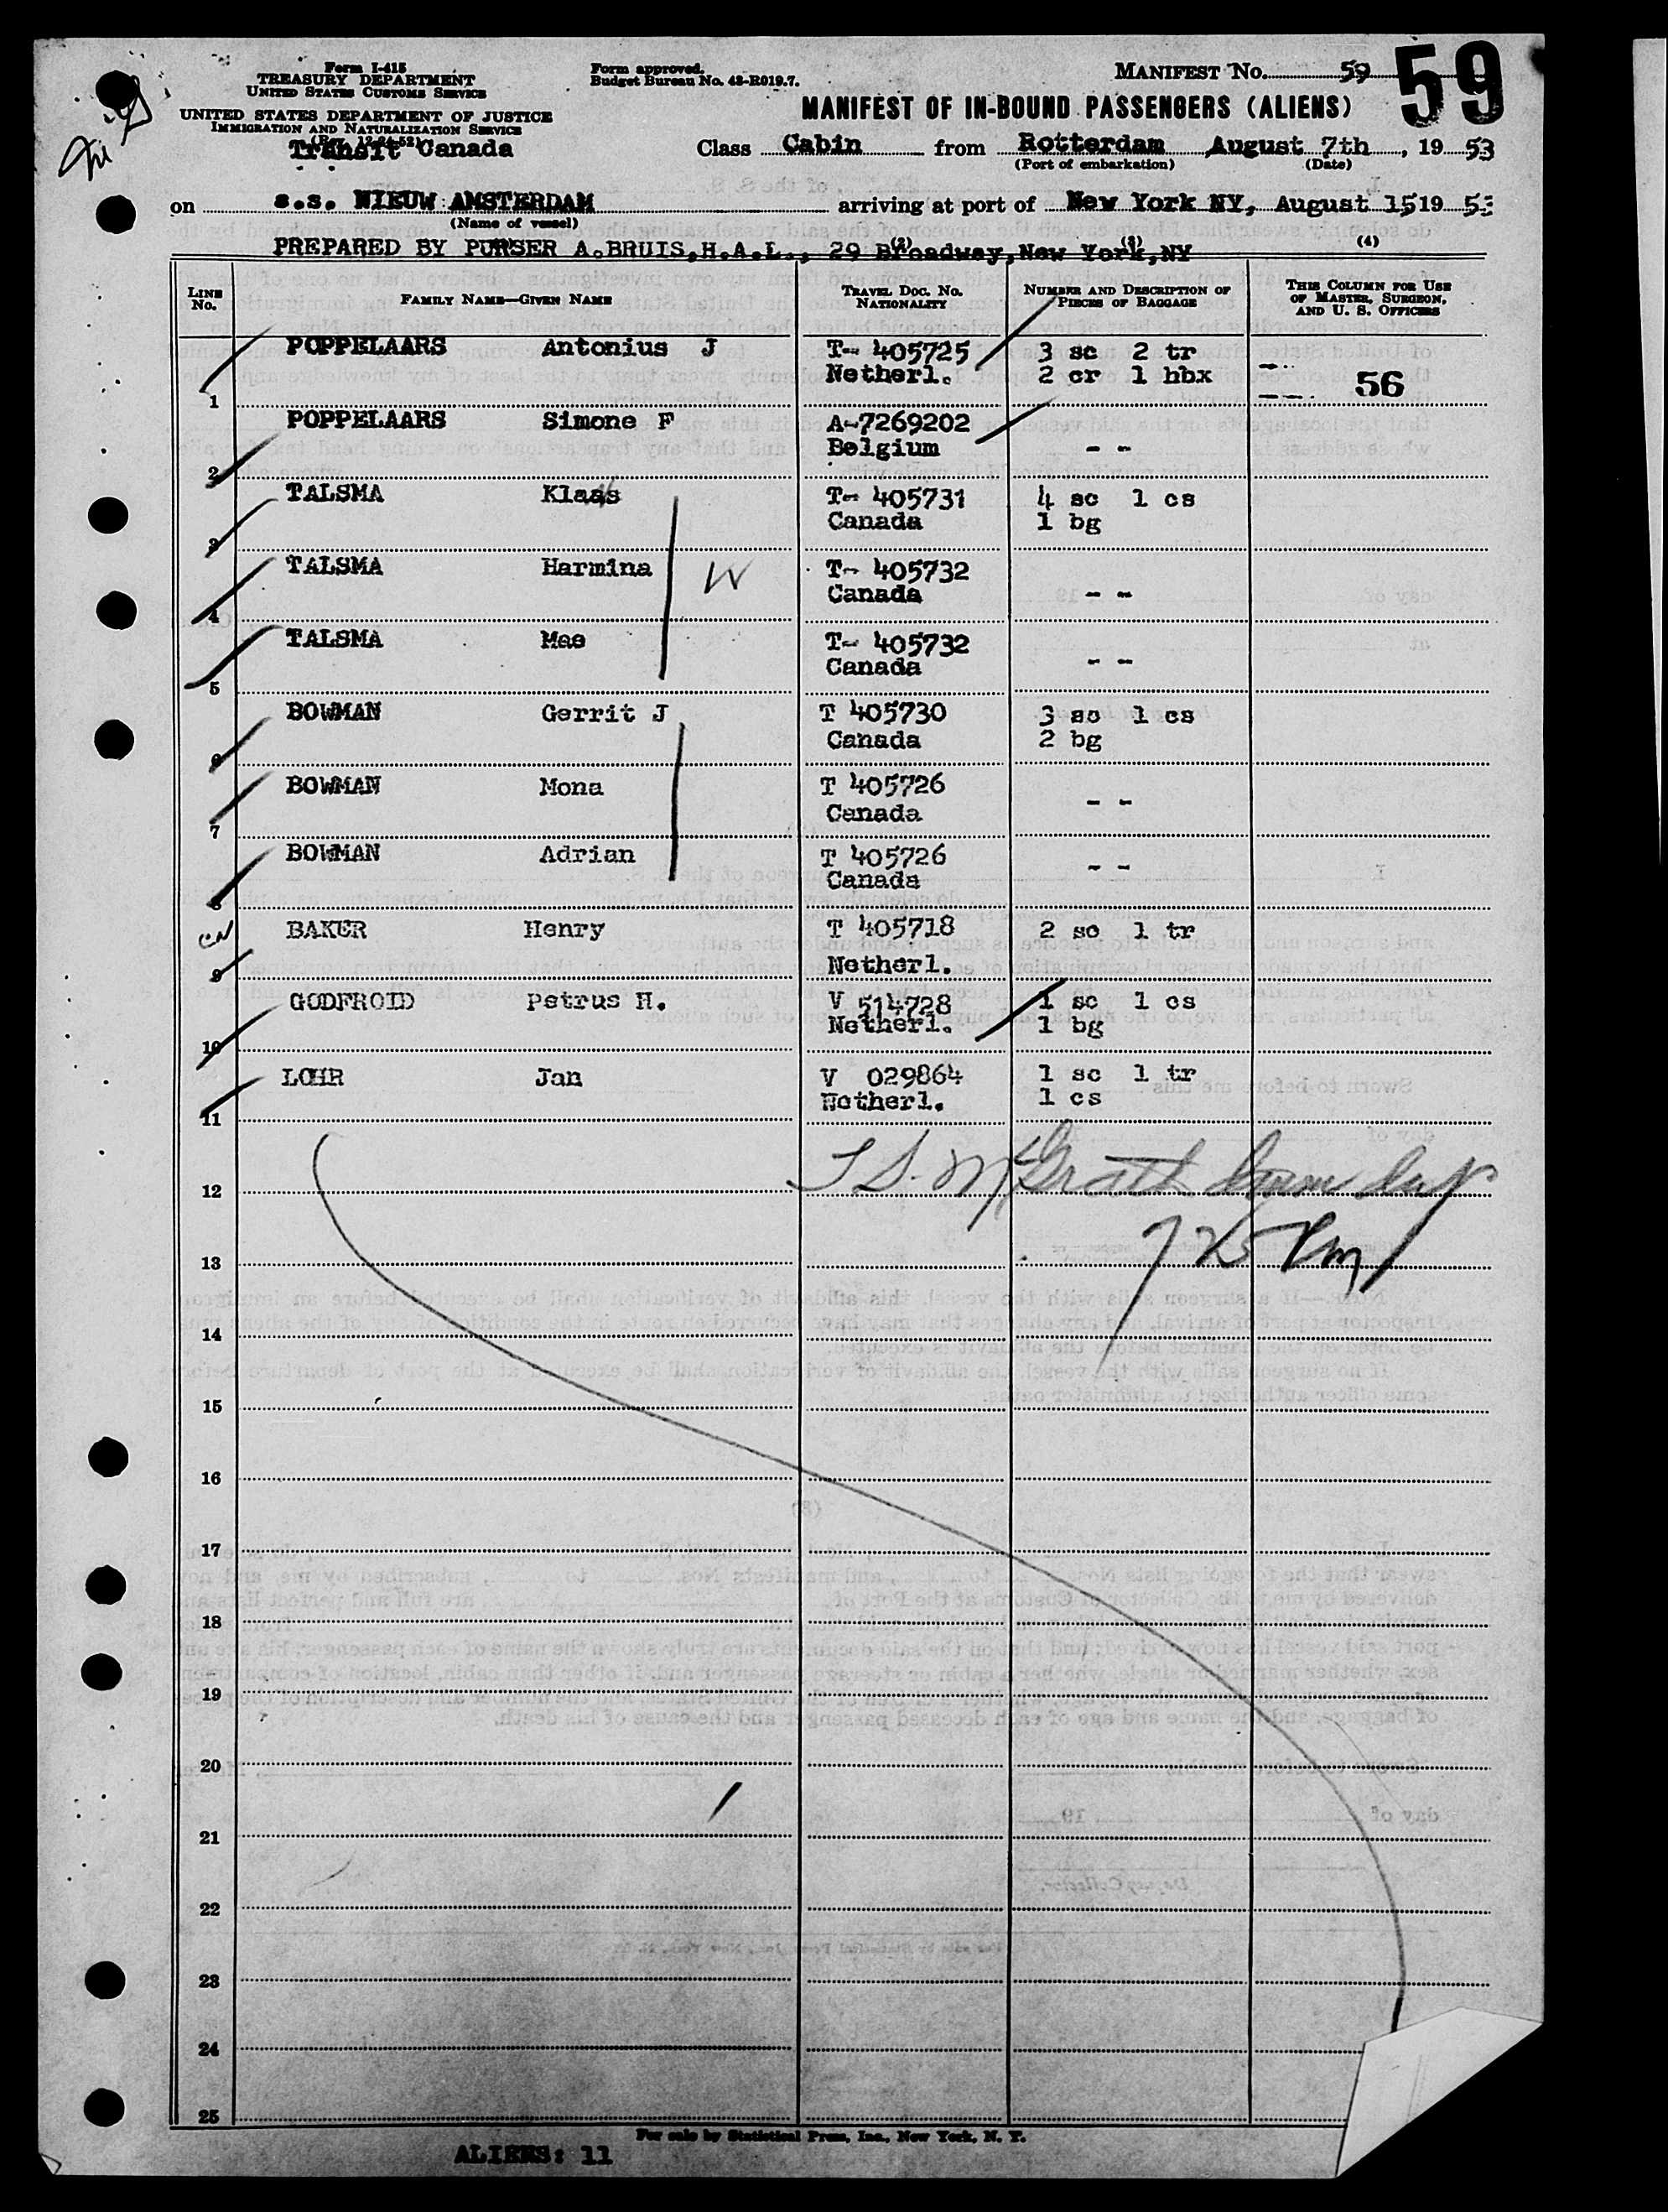 Form I-415
TREASURY DEPARTMENT
UNITED STATES CUSTOMS SERVICE
UNITED STATES DEPARTMENT OF JUSTICE
IMMIGRATION AND NATURALIZATION SERVICE
Transit Canada
Form approved.
Budget Bureau No. 43-R019.7.
MANIFEST No. 59
59
MANIFEST OF IN-BOUND PASSENGERS (ALIENS)
Class Cabin from Rotterdam August 7th, 1953
(Port of embarkation) (Date)
on s.s. NIEUW AMSTERDAM arriving at port of New York NY, August 15 1953
(Name of vessel)
PREPARED BY PURSER A.BRUIS,H.A.L., 29 Broadway,New York,NY
(2) (3) (4)
LINE No. FAMILY NAME—GIVEN NAME TRAVEL DOC. NO. NATIONALITY NUMBER AND DESCRIPTION OF PIECES OF BAGGAGE THIS COLUMN FOR USE OF MASTER, SURGEON, AND U. S. OFFICERS
POPPELAARS Antonius J T- 405725 3 sc 2 tr
1 Netherl. 2 cr 1 hbx -- 56
POPPELAARS Simone F A-7269202
2 Belgium - -
TALSMA Klaas T- 405731 4 sc 1 cs
3 Canada 1 bg
TALSMA Harmina W T- 405732
4 Canada - -
TALSMA Mae T- 405732
5 Canada - -
BOWMAN Gerrit J T 405730 3 sc 1 cs
6 Canada 2 bg
BOWMAN Mona T 405726
7 Canada - -
BOWMAN Adrian T 405726
8 Canada - -
BAKER Henry T 405718 2 sc 1 tr
9 Netherl.
GODFROID Petrus H. V 514728 1 sc 1 cs
10 Netherl. 1 bg
LOHR Jan V 029864 1 sc 1 tr
11 Netherl. 1 cs
12
13 725 Pm
14
15
16
17
18
19
20
21
22
23
24
25
For sale by Statistical Press, Inc., New York, N. Y.
ALIENS: 11